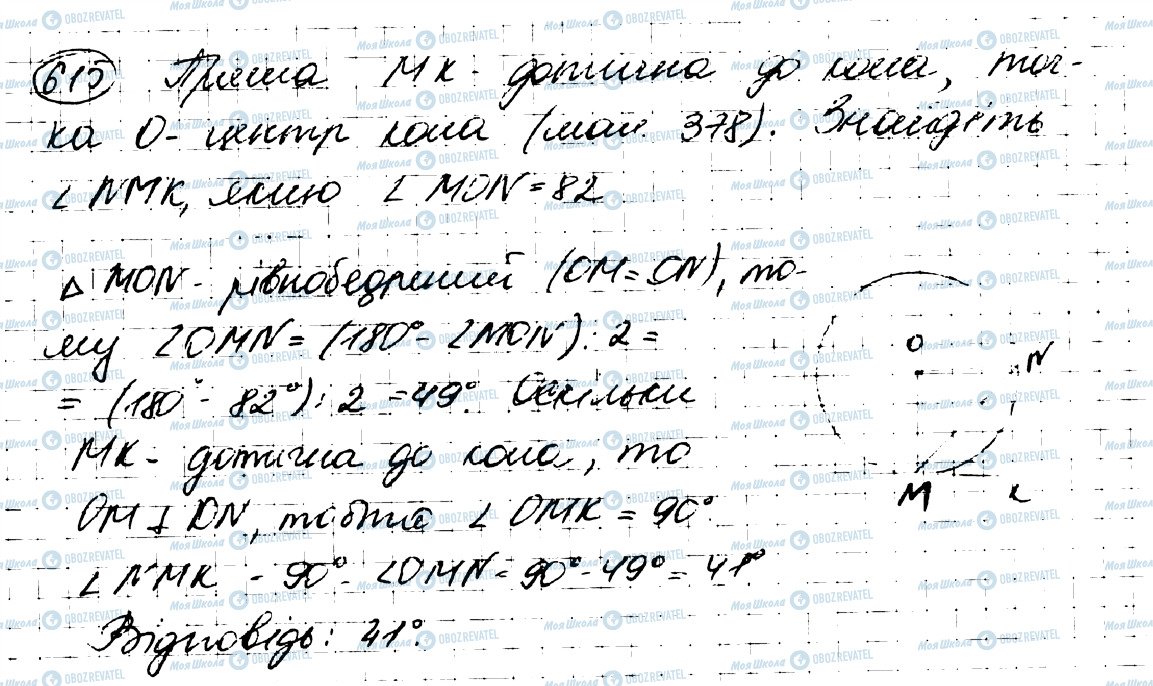 615 Пряма МК - дотична до кола, точ-
ка О - центр кола (мал. 378). Знайдіть
∠NMK, якщо ∠MON = 82
△MON - рівнобедрений (OM = ON), то-
му ∠OMN = (180° - ∠MON) : 2 =
= (180° - 82°) : 2 = 49°. Оскільки
МК - дотична до кола, то
OM ⊥ KN, тобто ∠OMK = 90°
∠NMK = 90° - ∠OMN = 90° - 49° = 41°
Відповідь: 41°.
O
N
M
K
МояШкола OBOZREVATEL